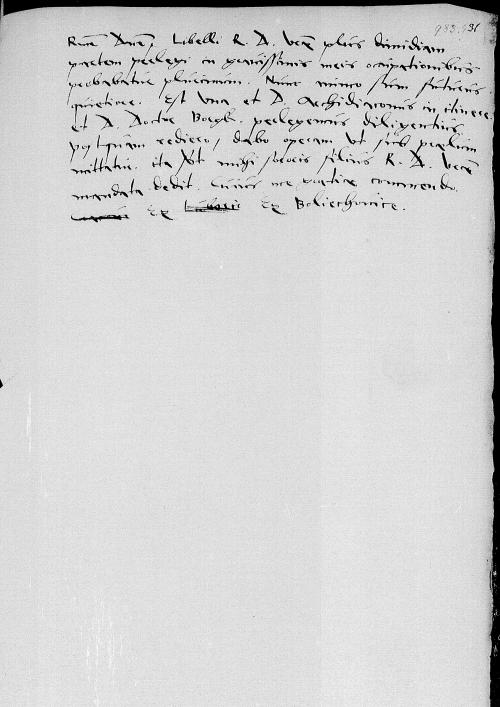 983. 931
Rme Dne, Libelli R. D. Vrae plus dimidiam
partem perlegi in gravissimis meis occupationibus
probabatur plurimum. Nunc nunc sum futurus
quietior. Est una et D. Archidiaconus in itinere
et D. Doctor Borgk. perlegemus diligentius
postquam rediero, dabo operam ut sub praelum
mittatur. ita mihi filius R. D. Vrae
mandata dedit. Cuius me gratiae commendo.
Ex Ex Boliechovice.